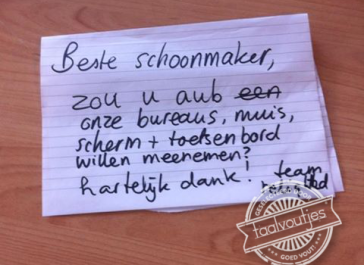 Beste schoonmaker,
zou u aub een
onze bureaus, muis,
scherm + toetsenbord
willen meenemen?
hartelijk dank! team
taalvoutjes
GOED VOUT!